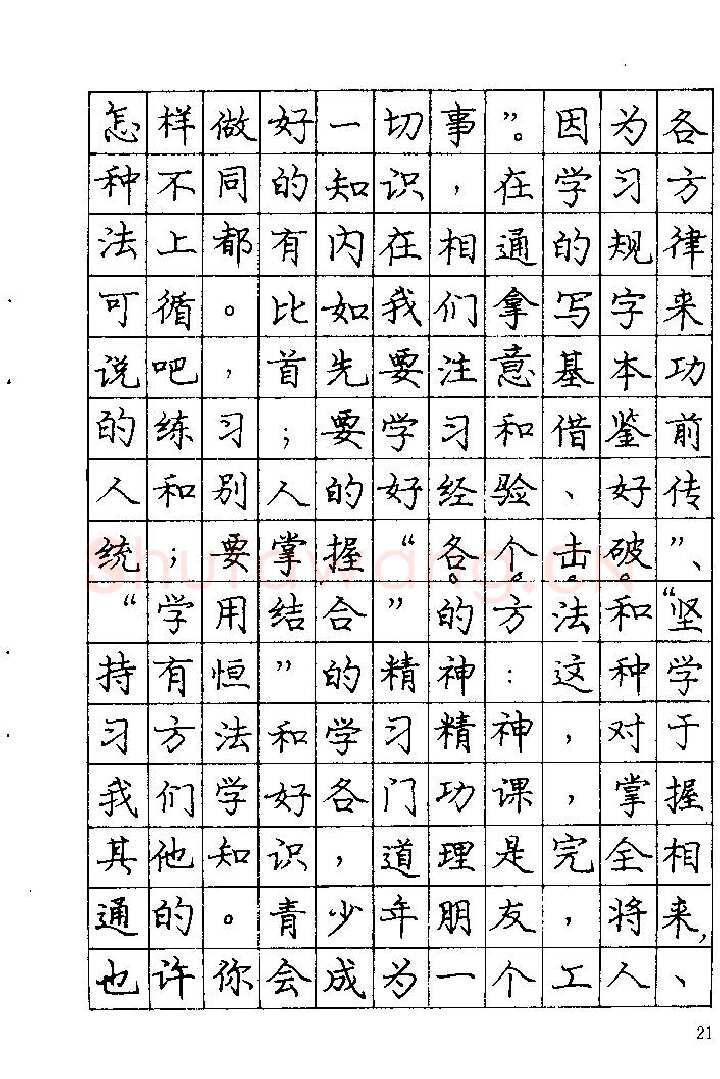 怎样做好一切事”。因为各
种不同的知识，在学习方
法上都有内在相通的规律
可循。比如我们拿写字来
说吧，首先要注意基本功
的练习；要学习和借鉴前
人和别人的好经验、好传
统；要掌握“各个击破”、
“学用结合”的方法和“坚
持有恒”的精神：这种学
习方法和学习精神，对于
我们学好各门功课，掌握
其他知识，道理是完全相
通的。青少年朋友，将来，
也许你会成为一个工人、
21
Shufawang.CN